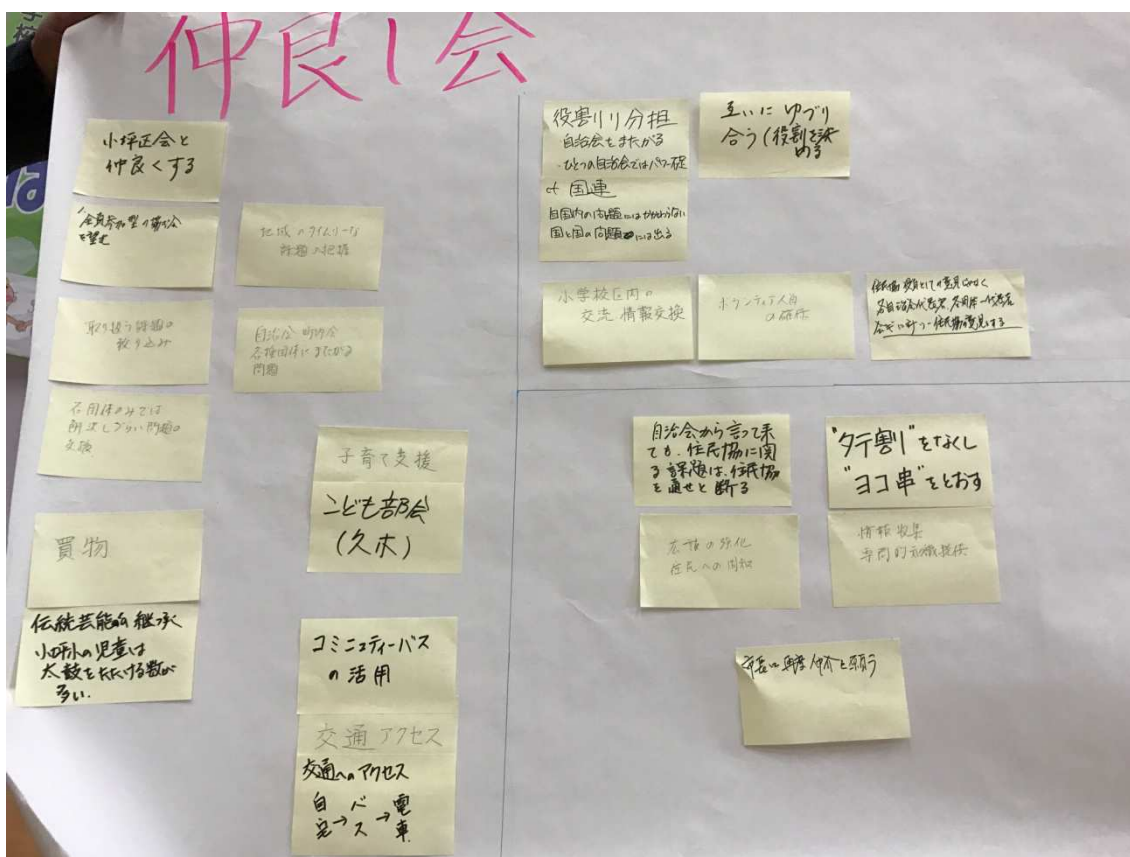 仲良し会
小坪正会と
仲良くする
全員参加型の
を望む
地域のタイムリーな
話題の把握
取り扱う話題の
絞り込み
自治会 町内会
各種団体にまたがる
問題
各団体のみでは
解決しづらい問題の
支援
子育て支援
こども部会
(久木)
買物
伝統芸能の継承
小坪小の児童は
太鼓をたたける数が
多い.
コミニュティーバス
の活用
交通アクセス
交通へのアクセス
自宅→バス→電車
役割り分担
自治会をまたがる
・ひとつの自治会ではパワー不足
国連
自国内の問題にはかかわらない
国と国の問題には出る
互いにゆづり
合う(役割を決
める
小学校区内の
交流 情報交換
ボランティア人員
の確保
住民協役員としての意見じゃなく
自治会から言って来
ても、住民協に関
る課題は、住民協
を通せと断る
"タテ割り"をなくし
"ヨコ串"をとおす
広報の強化
住民への周知
情報収集
専門的知識提供
市長に再度仲介を願う